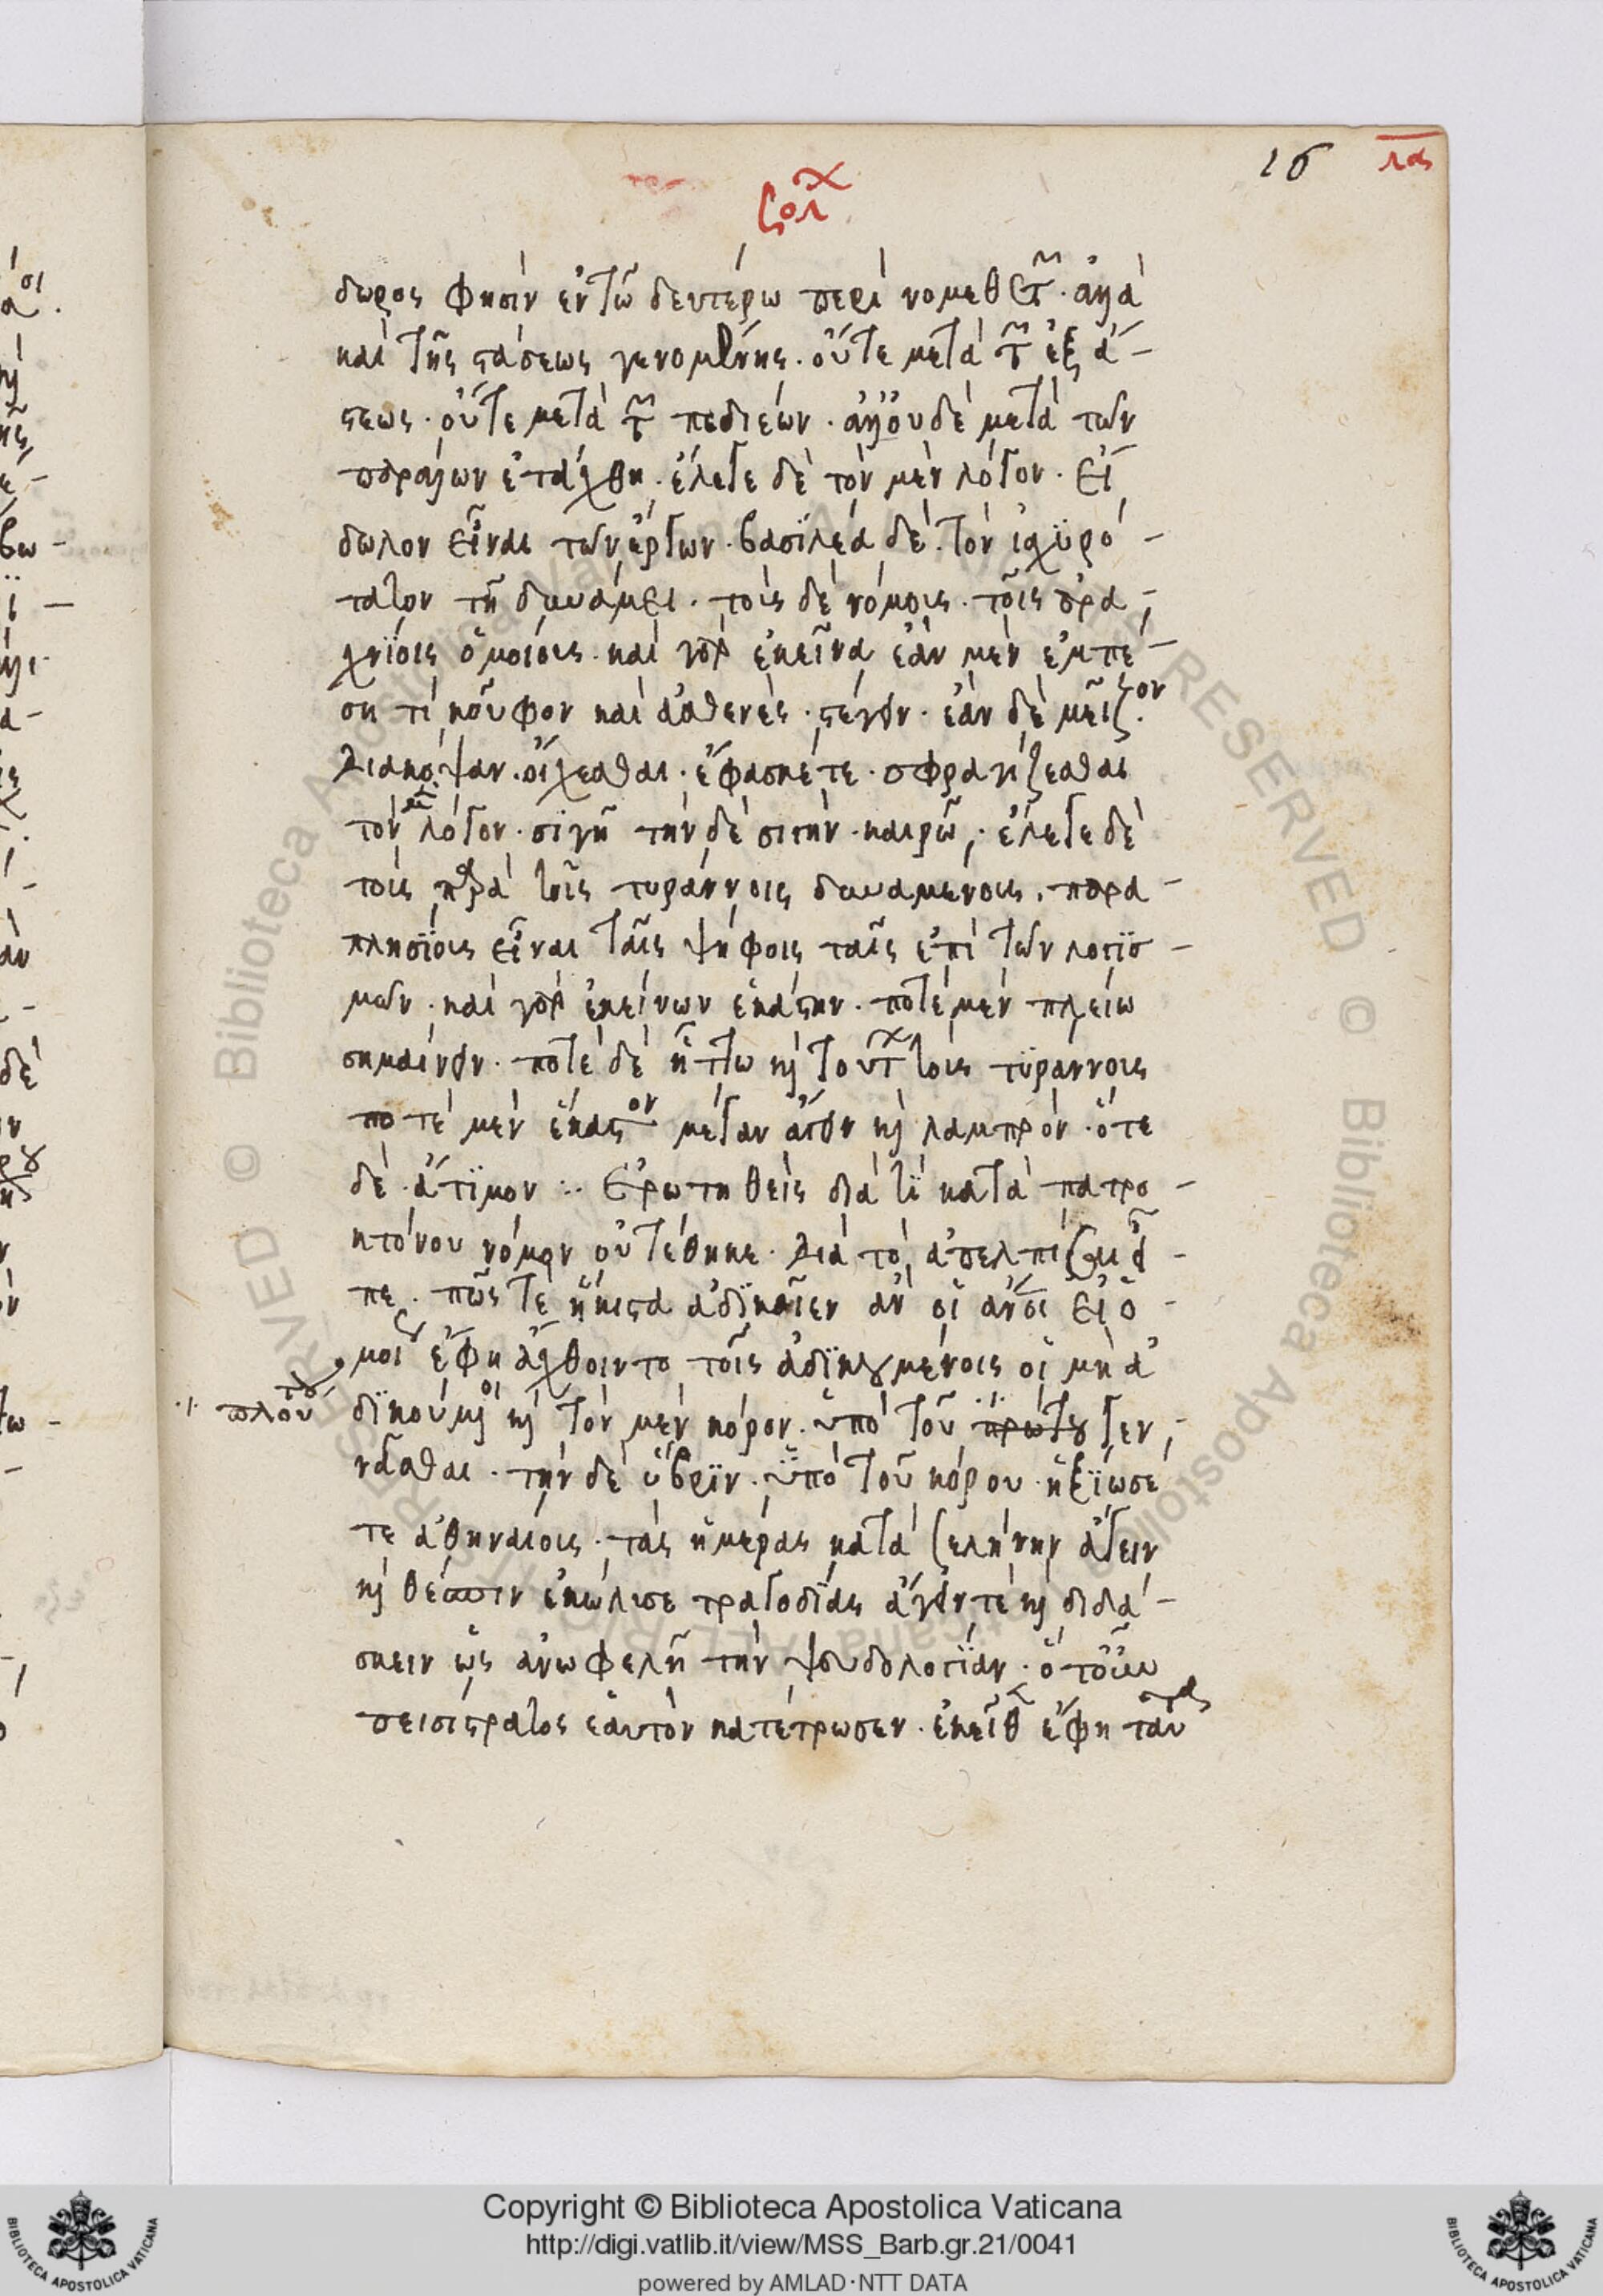 16 λα
σολ
δωρος φησὶν ἐν τῶ δευτέρω περὶ νομεθετ̃. ἀλλὰ
καὶ τῆς στάσεως γενομένης. οὔτε μετὰ τ̃ ἐξ ἄ-
στεως. οὔτε μετὰ τ̃ πεδιέων. ἀλλ' οὐδὲ μετὰ τῶν
παράλων ἐτάχθη. ἔλεγε δὲ τὸν μὲν λόγον. εἴ
δωλον εἶναι τῶν ἔργων. βασϊλέα δὲ. τὸν ἰσχϋρό-
τατον τῆ δυνάμει. τοὺς δὲ νόμοις. τοῖς ἀρα-
χνίοις ὁμοίους. καὶ γὰρ ἐκεῖνα ἐὰν μὲν ἐμπέ-
ση τὶ κοῦφον καὶ ἀσθενὲς. στέγειν. ἐὰν δὲ μεῖζον.
διακόψαν. οἴχεσθαι. ἔφασκέ τε. σφραγίζεσθαι
τὸν μὲν λόγον. σιγῆ τὴν δὲ σιγὴν. καιρῶ. ἔλεγε δὲ
τοὺς παρὰ τοῖς τυράννοις δυναμένους. παρα-
πλησϊους εἶναι ταῖς ψήφοις ταῖς ἐπὶ τῶν λογϊσ-
μῶν. καὶ γὰρ ἐκείνων ἑκάστην. ποτὲ μὲν πλείω
σημαίνειν. ποτὲ δὲ ἥττω κ τούτ τοὺς τϋράννους
ποτὲ μὲν ἕκαστον μέγαν ἄγειν κ λαμπρὸν. ὁτὲ
δὲ. ἄτϊμον :. Ἐρωτηθεὶς διὰ τί κατὰ πατρο-
κτόνου νόμον οὐ τέθηκε. διὰ τὸ ἀπελπίσαι εἶ-
πε. πῶς τὲ ἥκιστα ἀδϊκοῖεν ἂν οἱ ἄνοι εἰ ὁ-
μοί ἔφη ἄχθοιντο τοῖς ἀδϊκουμένοις οἱ μὴ ἀ
δϊκούμενοι κ τὸν μὲν κόρον. ὑπὸ τοῦ πρώτου γεν-
·/· πλούτου
νᾶσθαι. τὴν δὲ ὕβρϊν. ὑπὸ τοῦ κόρου. ἠξϊωσέ
τε ἀθηναίοις. τὰς ἡμέρας κατὰ σελήνην ἄγειν
κ θέσπιν ἐκώλυσε τραγοδίας ἄγειν τὲ κ διδά-
σκειν ὡς ἀνωφελῆ τὴν ψευδολογϊαν. ὅτ' οὖν
πεισίστρατος ἑαυτὸν κατέτρωσεν. ἐκεῖθ ἔφη ταῦτα
© Biblioteca Apostolica Vaticana ALL RIGHTS RESERVED
Copyright © Biblioteca Apostolica Vaticana
http://digi.vatlib.it/view/MSS_Barb.gr.21/0041
powered by AMLAD·NTT DATA
BIBLIOTECA APOSTOLICA VATICANA
BIBLIOTECA APOSTOLICA VATICANA